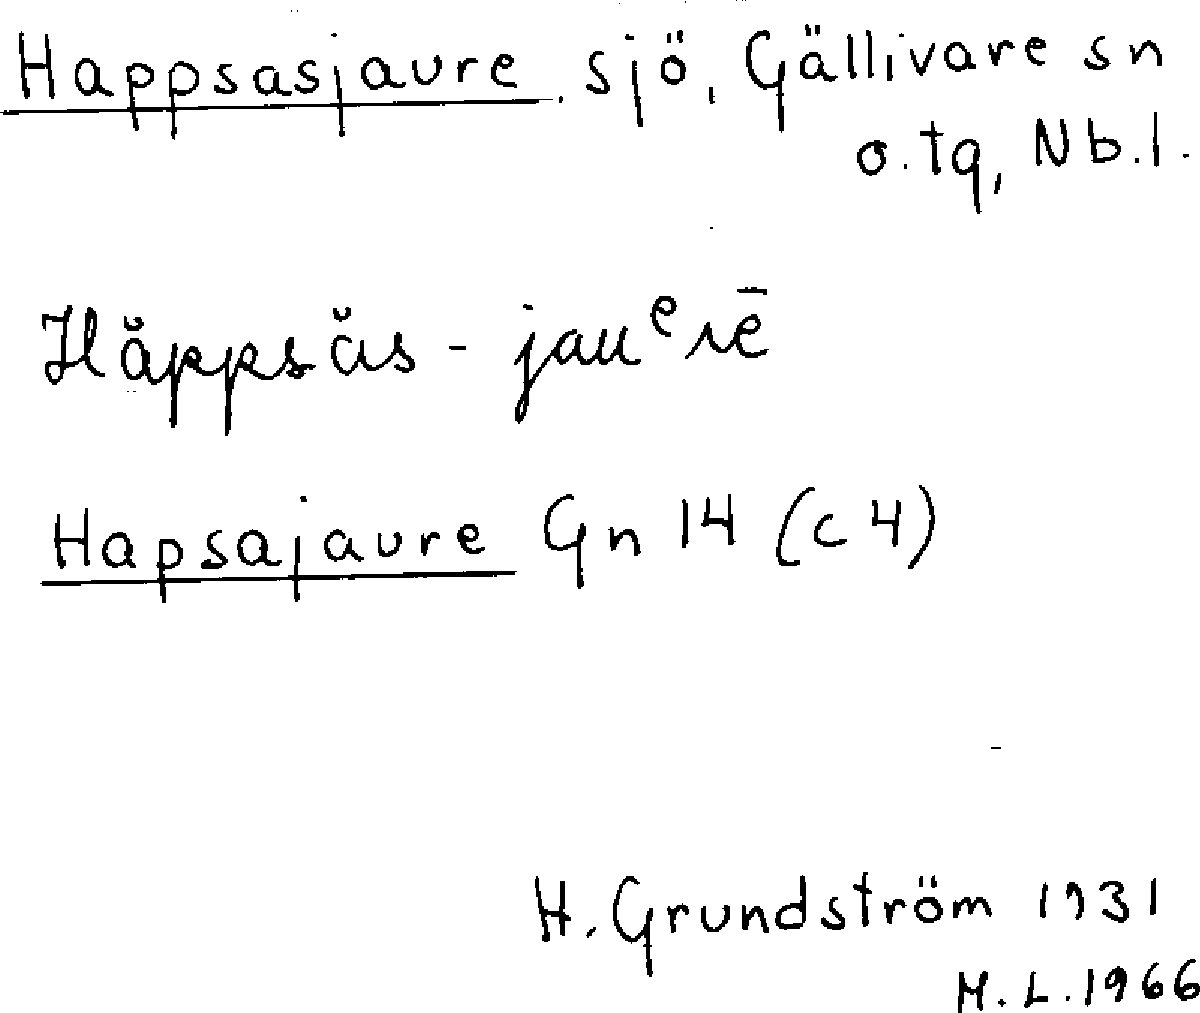 Happsasjaure, sjö, Gällivare sn
o. tg, Nb.l.
Hăppsăs-jauᵉrē
Hapsajaure Gn 14 (c4)
H. Grundström 1931
M. L. 1966